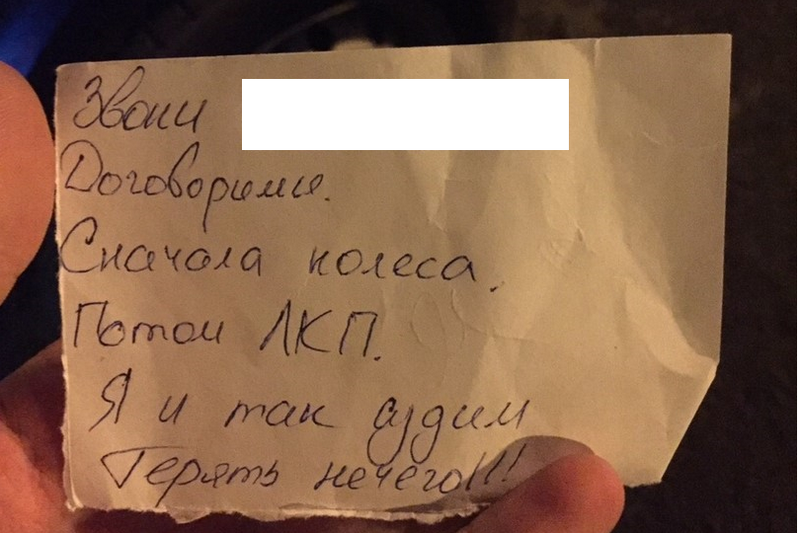 Звони
Договоримся.
Сначала колеса.
Потом ЛКП.
Я и так судим
Терять нечего!!!